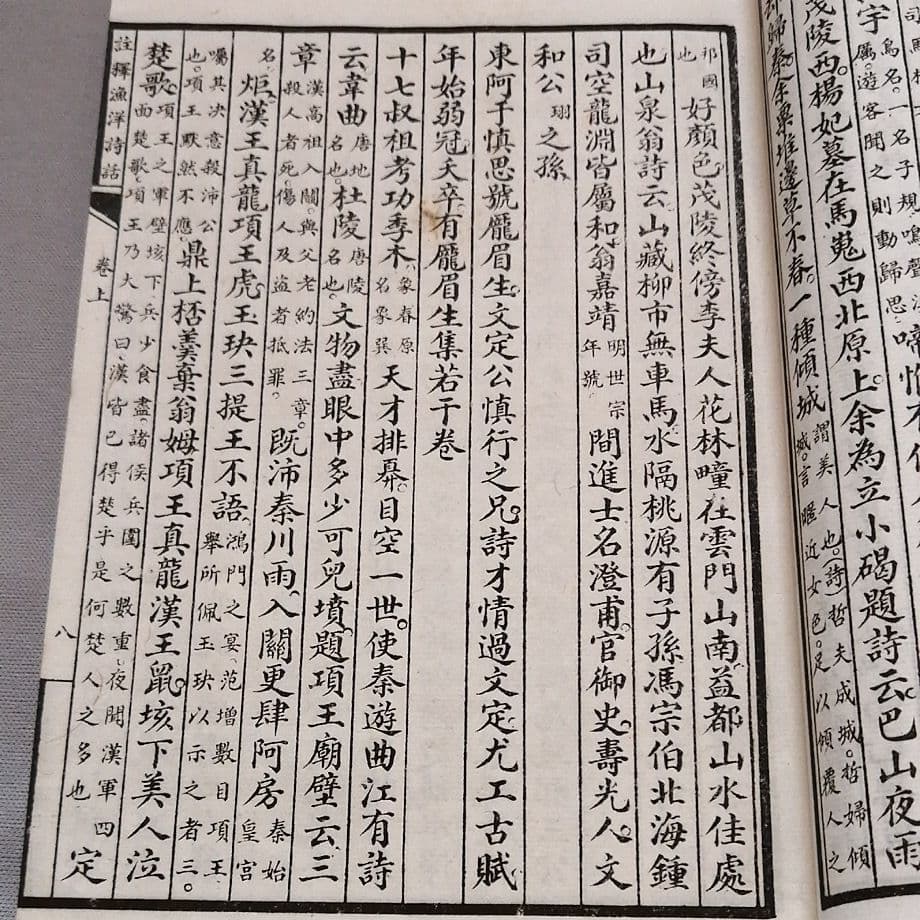 茂陵西。楊妃墓在馬嵬西北原上。余為立小碣題詩云。巴山夜雨
却歸秦。金粟堆邊草不春。一種傾城謂美人也。(詩)哲夫成城。哲婦傾城。言暱近女色。足以傾覆人之
邦國也好顏色。茂陵終傍李夫人花林疃在雲門山南。益都山水佳處
也山泉翁詩云山藏柳市無車馬。水隔桃源有子孫馮宗伯北海鍾
司空龍淵皆屬和。翁嘉靖明世宗年號間進士名澄甫。官御史。壽光人。文
和公珝之孫
東阿于慎思號龐眉生。文定公慎行之兄。詩才情過文定。尤工古賦
年始弱冠。夭卒。有龐眉生集若干卷
十七叔祖考功季木象春原名象巽天才排奡。目空一世。使秦遊曲江有詩
云韋曲唐地名也。杜陵唐陵名也。文物盡眼中多少可兒墳。題項王廟壁云三
章漢高祖入關與父老約法三章。殺人者死。傷人及盜者抵罪。既沛秦川雨。入關更肆阿房秦始皇宮
名。炬。漢王真龍項王虎。玉玦三提王不語。鴻門之宴。范增數目項王。舉所佩玉玦以示之者三。
囑其決意殺沛公也。項王默然不應。鼎上桮羹棄翁姆項王真龍漢王鼠。垓下美人泣
楚歌。項王之軍壁垓下兵少食盡。諸侯兵圍之數重。夜聞漢軍四面楚歌。項王乃大驚曰。漢皆已得楚乎是何楚人之多也定
註釋漁洋詩話 卷上 八